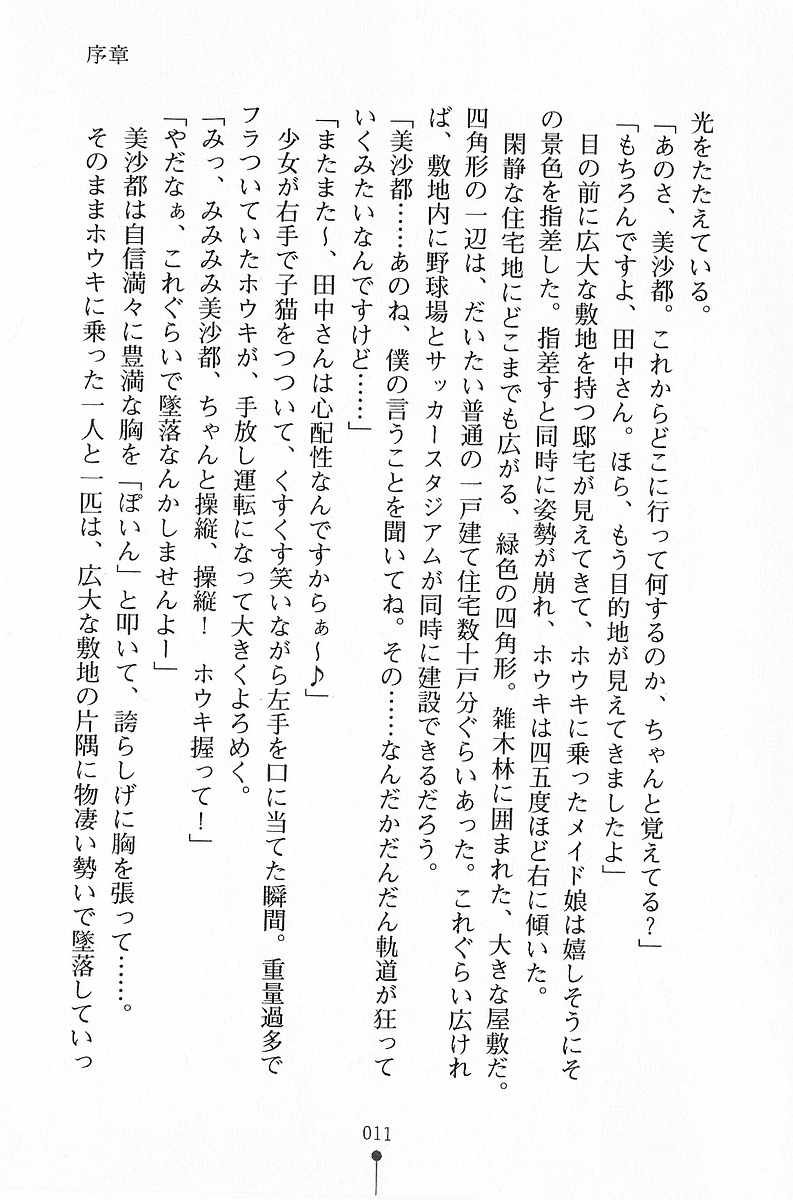 序章
光をたたえている。
「あのさ、美沙都。これからどこに行って何するのか、ちゃんと覚えてる？」
「もちろんですよ、田中さん。ほら、もう目的地が見えてきましたよ」
目の前に広大な敷地を持つ邸宅が見えてきて、ホウキに乗ったメイド娘は嬉しそうにそ
の景色を指差した。指差すと同時に姿勢が崩れ、ホウキは四五度ほど右に傾いた。
閑静な住宅地にどこまでも広がる、緑色の四角形。雑木林に囲まれた、大きな屋敷だ。
四角形の一辺は、だいたい普通の一戸建て住宅数十戸分ぐらいあった。これぐらい広けれ
ば、敷地内に野球場とサッカースタジアムが同時に建設できるだろう。
「美沙都……あのね、僕の言うことを聞いてね。その……なんだかだんだん軌道が狂って
いくみたいなんですけど……」
「またまた～、田中さんは心配性なんですからぁ～♪」
少女が右手で子猫をつついて、くすくす笑いながら左手を口に当てた瞬間。重量過多で
フラついていたホウキが、手放し運転になって大きくよろめく。
「みっ、みみみみ美沙都、ちゃんと操縦、操縦！　ホウキ握って！」
「やだなぁ、これぐらいで墜落なんかしませんよー」
美沙都は自信満々に豊満な胸を「ぽいん」と叩いて、誇らしげに胸を張って……。
そのままホウキに乗った一人と一匹は、広大な敷地の片隅に物凄い勢いで墜落していっ
011